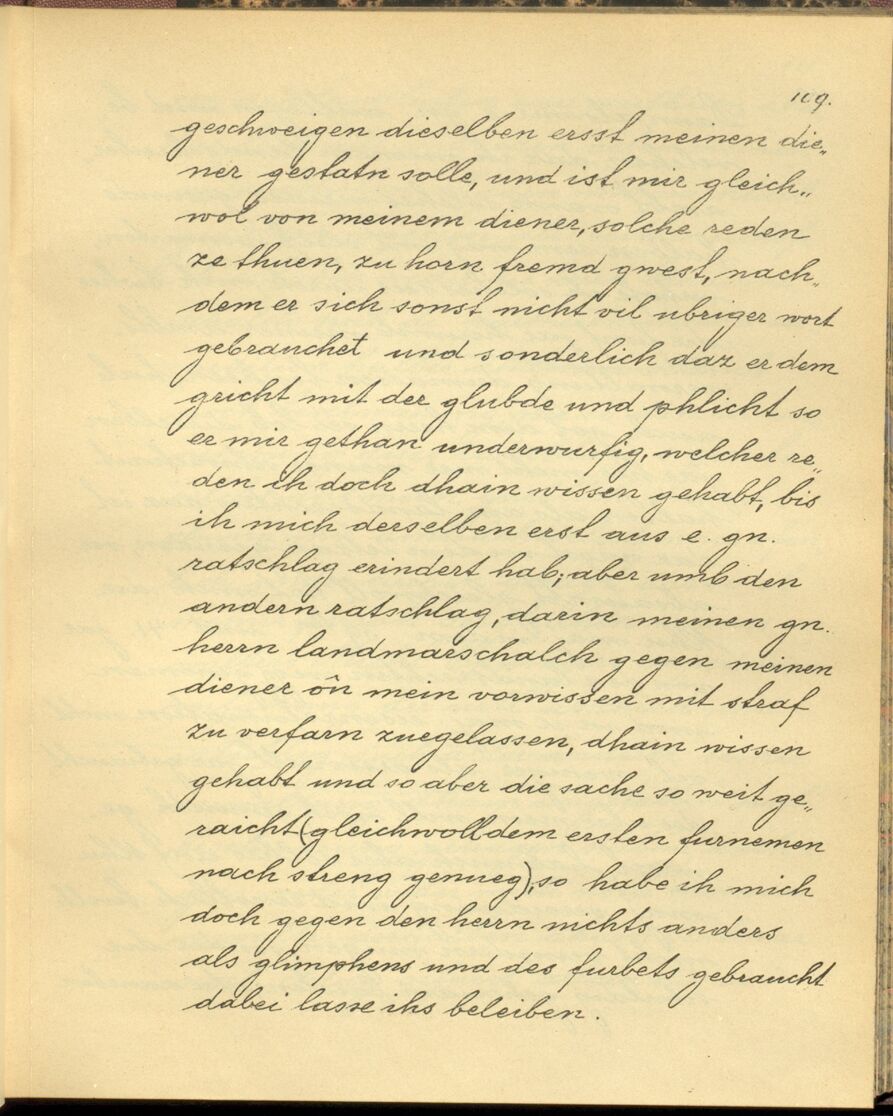 109.
geschweigen dieselben ersst meinen die„
ner gestatn solle, und ist mir gleich„
wol von meinem diener, solche reden
ze thuen, zu horn fremd gwest, nach„
dem er sich sonst nicht vil ubriger wort
gebrauchet und sonderlich daz er dem
gricht mit der glubde und phlicht so
er mir gethan underwurfig, welcher re„
den ih doch dhain wissen gehabt, bis
ih mich derselben erst aus e. gn.
ratschlag erindert hab; aber umb den
andern ratschlag, darin meinen gn.
herrn landmarschalch gegen meinen
diener ôn mein vorwissen mit straf
zu verfarn zuegelassen, dhain wissen
gehabt und so aber die sache so weit ge„
raicht (gleichwoll dem ersten furnemen
nach streng genueg), so habe ih mich
doch gegen den herrn nichts anders
als glimphens und des furbets gebraucht
dabei lasse ihs beleiben.